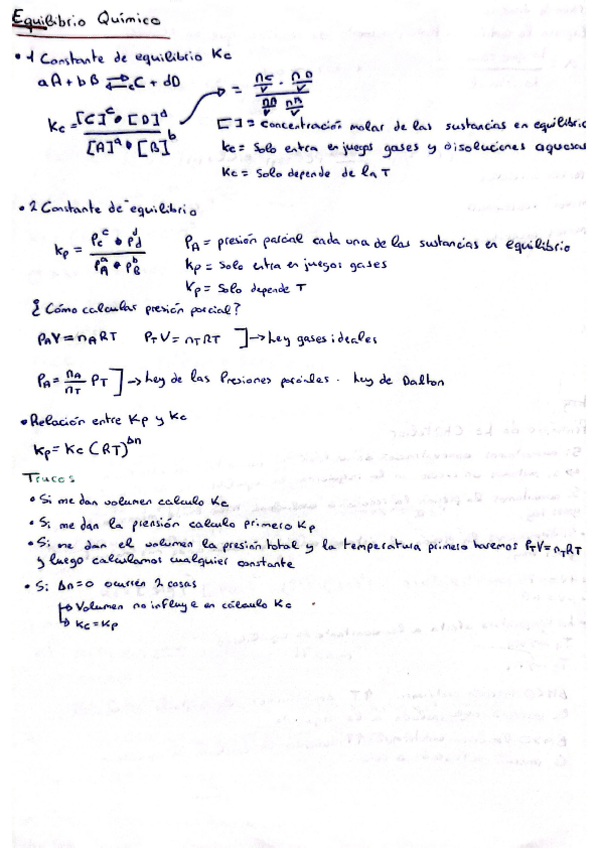 Equilibrio Químico
• 1 Constante de equilibrio Kc
aA + bB ⇌ cC + dD
Kc = [C]^c • [D]^d / [A]^a • [B]^b → = nC/V · nD/V / nA/V nB/V
[ ] = concentración molar de las sustancias en equilibrio
Kc = Solo entra en juegos gases y disoluciones aquosas
Kc = Solo depende de la T
• 2 Constante de equilibrio
Kp = Pc^c • Pd^d / PA^a • PB^b
PA = presión parcial cada una de las sustancias en equilibrio
Kp = Solo entra en juegos gases
Kp = Solo depende T
¿Cómo calculas presión parcial?
PAV = nART PTV = nTRT ] → Ley gases ideales
PA = nA/nT PT ] → Ley de las Presiones parciales. Ley de Dalton
• Relación entre Kp y Kc
Kp = Kc (RT)^Δn
Trucos
• Si me dan volumen calculo Kc
• Si me dan la prensión calculo primero Kp
• Si me dan el volumen la presión total y la temperatura primero haremos PTV = nTRT
y luego calculamos cualquier constante
• Si Δn = 0 ocurren 2 cosas
↳ Volumen no influye en cálculo Kc
↳ Kc = Kp